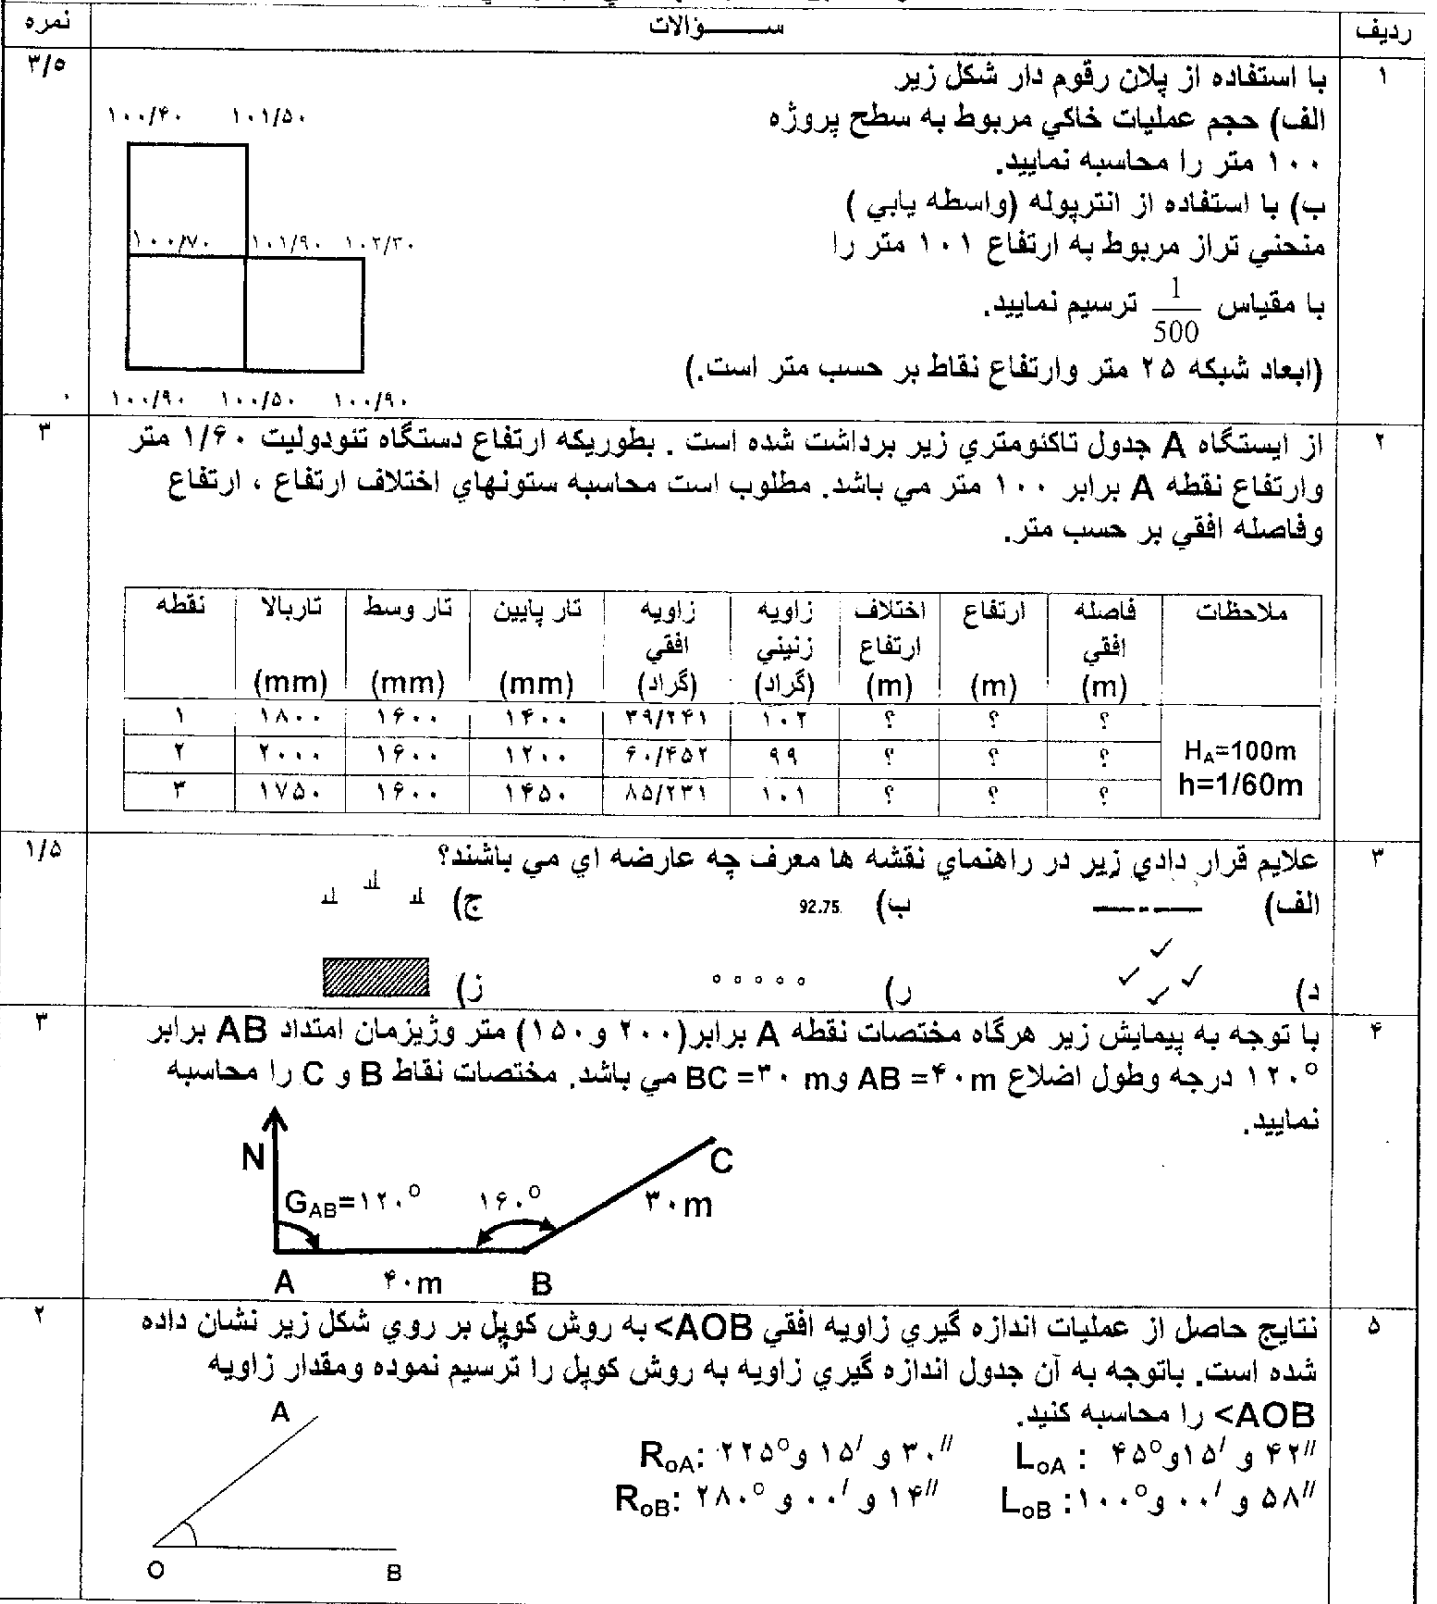 ردیف	ســـــؤالات	نمره
۱	با استفاده از پلان رقوم دار شکل زیر	۳/۵
الف) حجم عملیات خاکي مربوط به سطح پروژه
۱۰۰ متر را محاسبه نمایید.
ب) با استفاده از انترپوله (واسطه یابي )
منحني تراز مربوط به ارتفاع ۱۰۱ متر را
با مقیاس 1/500 ترسیم نمایید.
(ابعاد شبکه ۲۵ متر وارتفاع نقاط بر حسب متر است.)
۱۰۰/۴۰ ۱۰۱/۵۰
۱۰۰/۷۰ ۱۰۱/۹۰ ۱۰۲/۳۰
۱۰۰/۹۰ ۱۰۰/۵۰ ۱۰۰/۹۰
۲	از ایستگاه A جدول تاکئومتري زیر برداشت شده است . بطوریکه ارتفاع دستگاه تئودولیت ۱/۶۰ متر	۳
وارتفاع نقطه A برابر ۱۰۰ متر مي باشد. مطلوب است محاسبه ستونهاي اختلاف ارتفاع ، ارتفاع
وفاصله افقي بر حسب متر.
نقطه	تاربالا (mm)	تار وسط (mm)	تار پایین (mm)	زاویه افقي (گراد)	زاویه زنیني (گراد)	اختلاف ارتفاع (m)	ارتفاع (m)	فاصله افقي (m)	ملاحظات
۱	۱۸۰۰	۱۶۰۰	۱۴۰۰	۳۹/۲۴۱	۱۰۲	؟	؟	؟
۲	۲۰۰۰	۱۶۰۰	۱۲۰۰	۶۰/۴۵۲	۹۹	؟	؟	؟	H_A=100m
۳	۱۷۵۰	۱۶۰۰	۱۴۵۰	۸۵/۲۳۱	۱۰۱	؟	؟	؟	h=1/60m
۳	علایم قرار دادي زیر در راهنماي نقشه ها معرف چه عارضه اي مي باشند؟	۱/۵
الف)	ب) 92.75	ج)
د)	ر)	ز)
۴	با توجه به پیمایش زیر هرگاه مختصات نقطه A برابر(۲۰۰ و ۱۵۰) متر وژیزمان امتداد AB برابر	۳
۱۲۰° درجه وطول اضلاع AB =۴۰m و BC =۳۰ m مي باشد. مختصات نقاط B و C را محاسبه
نمایید.
N
C
G_AB=۱۲۰° ۱۶۰° ۳۰m
A ۴۰m B
۵	نتایج حاصل از عملیات اندازه گیري زاویه افقي AOB> به روش کوپل بر روي شکل زیر نشان داده	۲
شده است. باتوجه به آن جدول اندازه گیري زاویه به روش کوپل را ترسیم نموده ومقدار زاویه
AOB> را محاسبه کنید.
L_oA : ۴۵° و ۱۵′ و ۴۲″	R_oA: ۲۲۵° و ۱۵′ و ۳۰″
L_oB : ۱۰۰° و ۰۰′ و ۵۸″	R_oB: ۲۸۰° و ۰۰′ و ۱۴″
A
O B